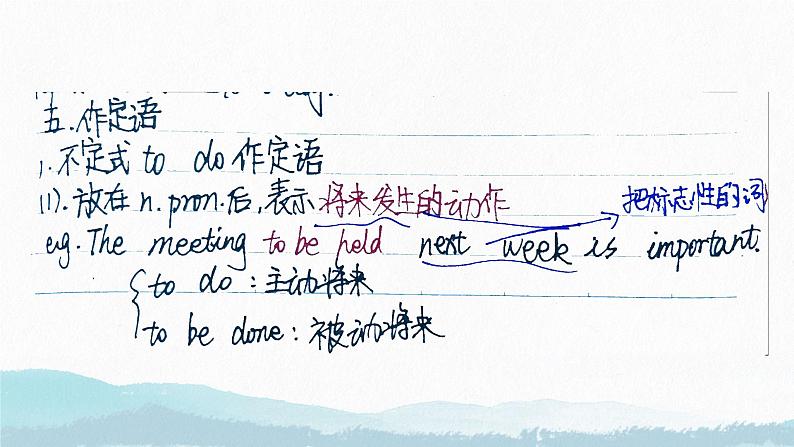 五.作定语
1.不定式 to do 作定语
(1).放在 n. pron.后,表示将来发生的动作 把标志性的词
eg. The meeting to be held next week is important.
to do : 主动将来
to be done : 被动将来